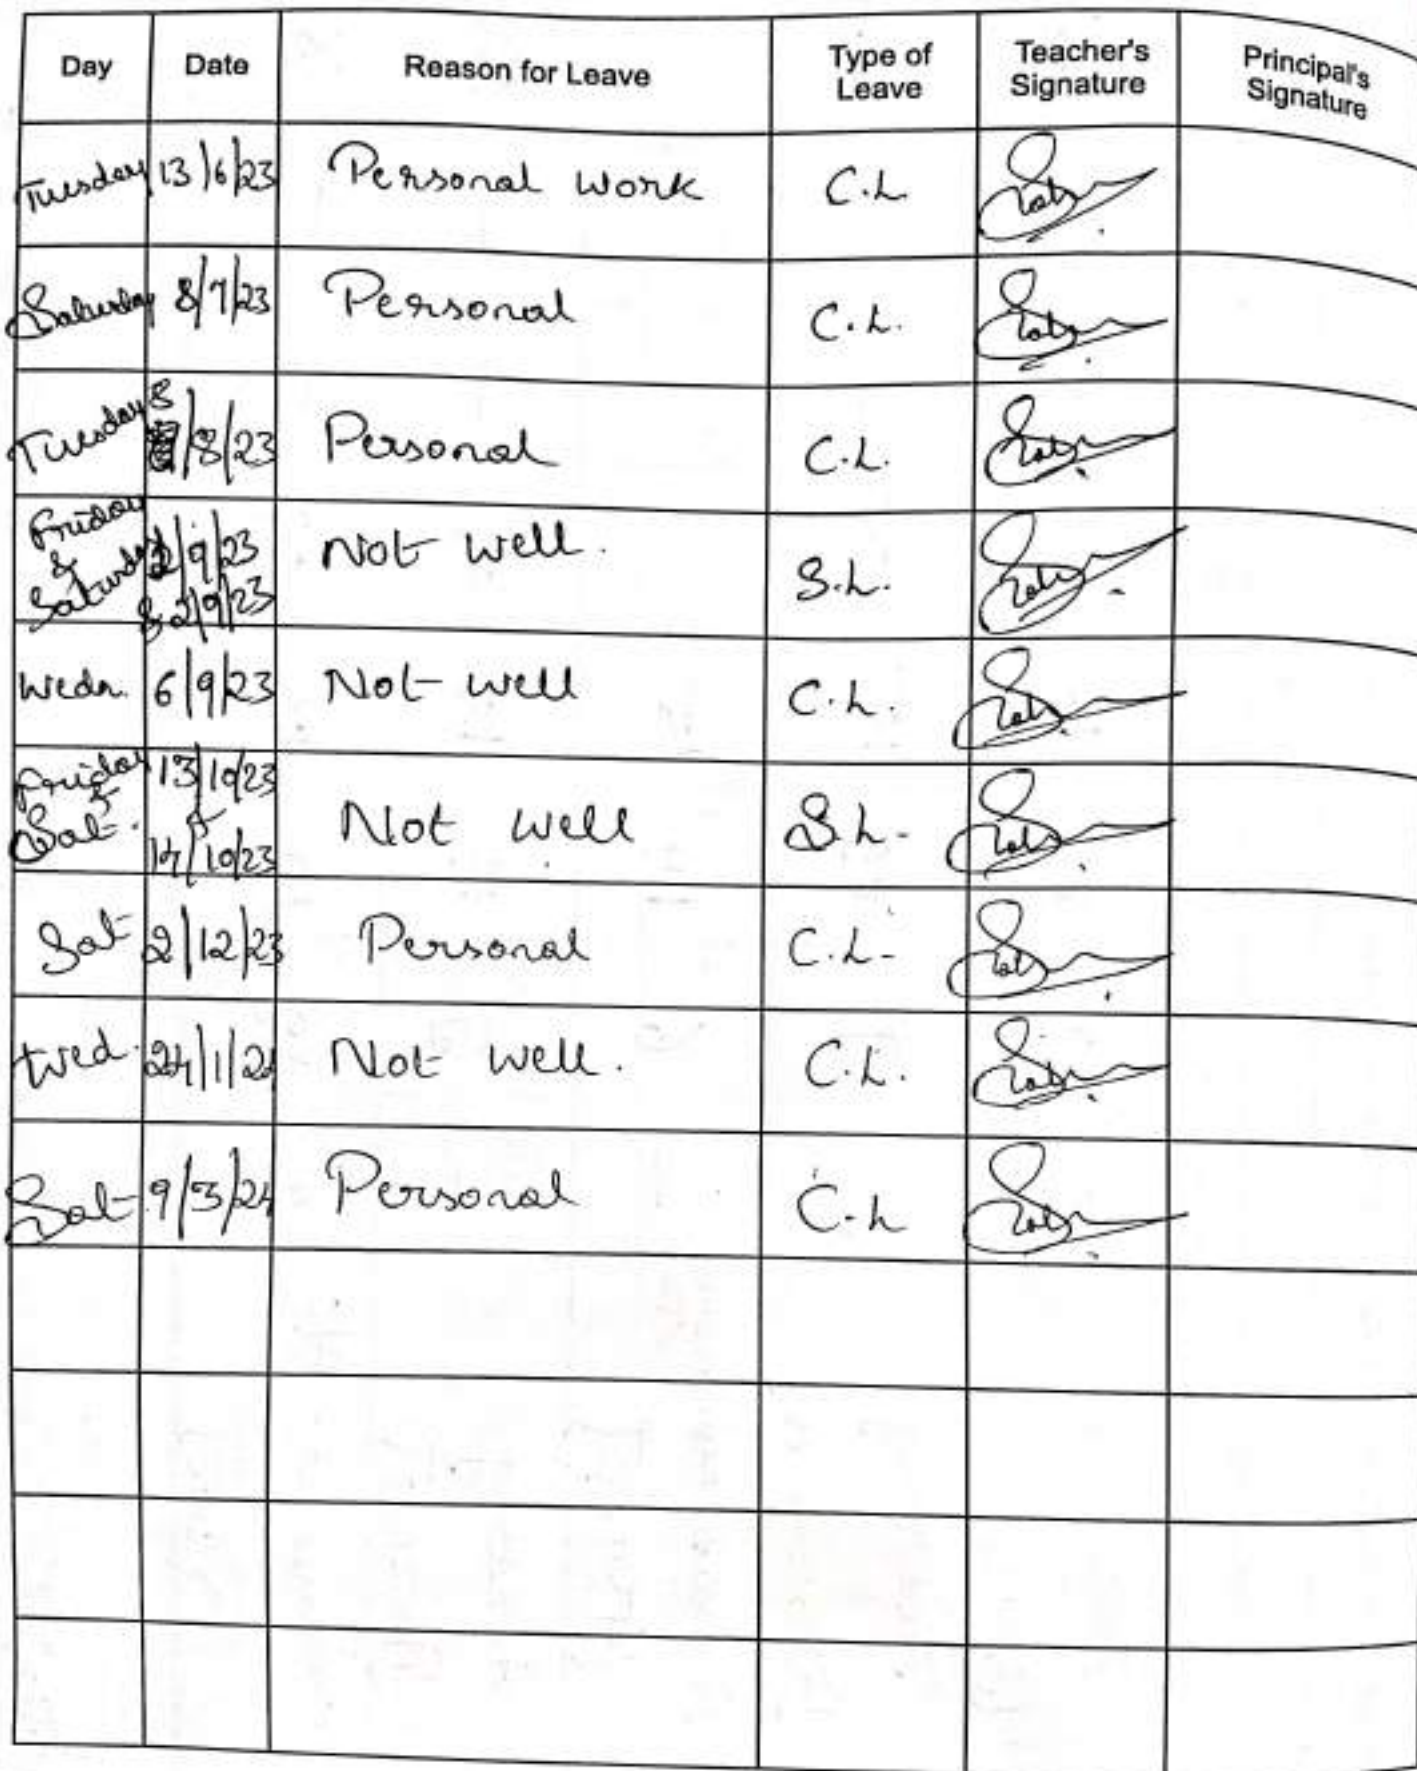 Day Date Reason for Leave Type of Leave Teacher's Signature Principal's Signature
Tuesday 13/6/23 Personal Work C.L
Saturday 8/7/23 Personal C.L.
Tuesday 8/8/23 Personal C.L.
Friday & Saturday /9/23 & 2/9/23 Not well. S.L.
Wedn. 6/9/23 Not well C.L.
Friday & Sat. 13/10/23 & 14/10/23 Not well S.L.
Sat 2/12/23 Personal C.L.
Wed. 24/1/24 Not well. C.L.
Sat 9/3/24 Personal C.L